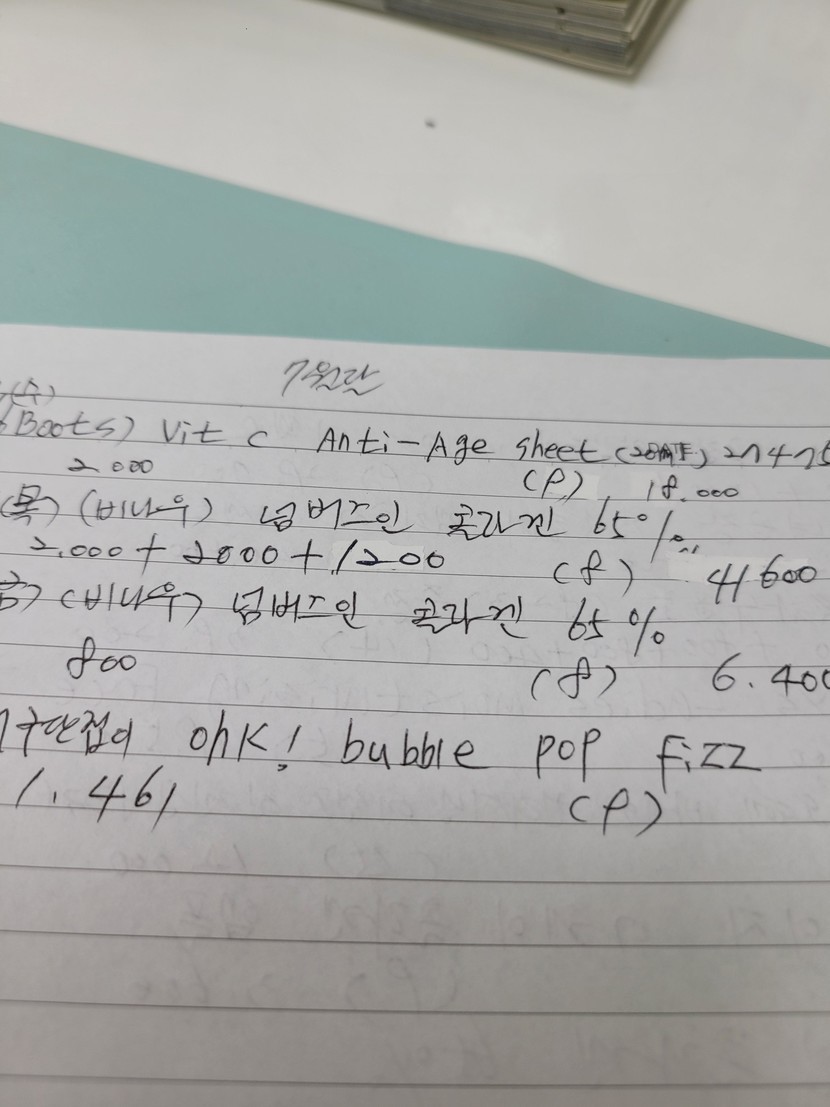 7월란
(수)
(Boots) Vit C Anti-Age sheet
2000 (P) 18.000
(목) (비나우) 넘버즈인 콜라겐 65%
2.000 + 2000 + 1200 (P) 41600
(비나우) 넘버즈인 콜라겐 65%
800 (P) 6.400
ohK! bubble pop fizz
1.461 (P)